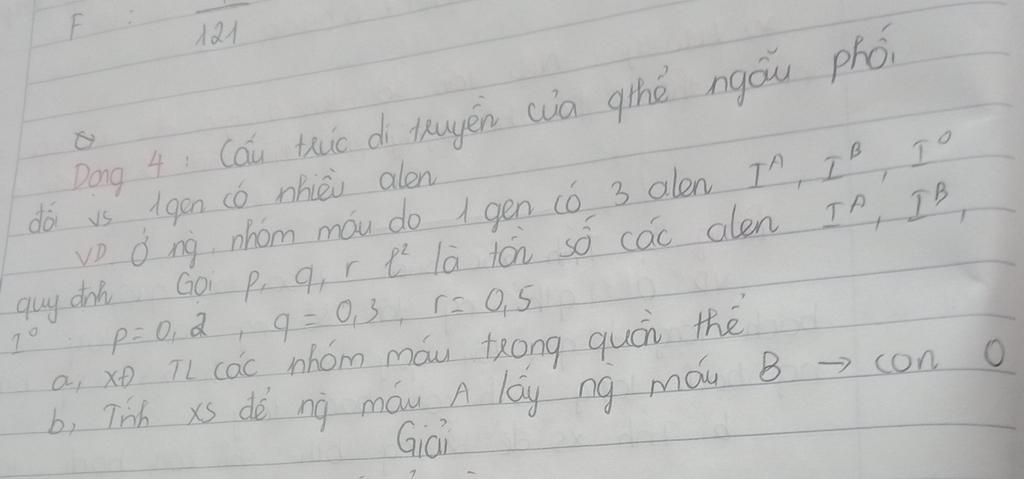 F : 121
Dạng 4: Cấu trúc di truyền của qthể ngẫu phối
đối vs 1gen có nhiều alen
VD Ở ng, nhóm máu do 1 gen có 3 alen Iᴬ, Iᴮ, Iᴼ
quy định Gọi p, q, r l² là tần số các alen Iᴬ, Iᴮ,
Iᴼ. p = 0,2, q = 0,3, r = 0,5
a, XĐ TL các nhóm máu trong quần thể
b, Tính XS để ng máu A lấy ng máu B → con O
Giải